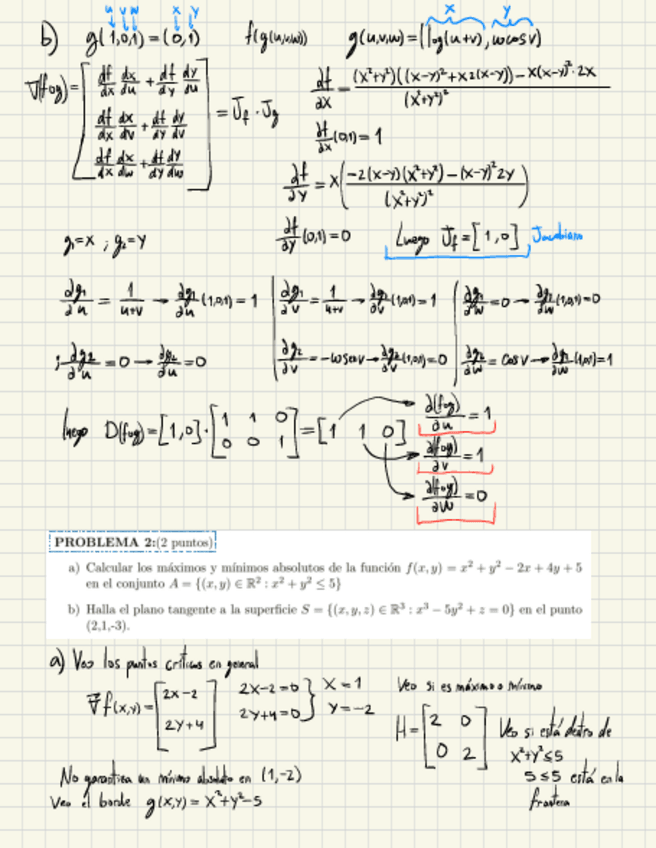 u v w x y
x y
b) g(1,0,1)=(0,1) f(g(u,v,w)) g(u,v,w)=(log(u+v), wcosv)
∇(fog)= [ df/dx dx/du + df/dy dy/du
df/dx dx/dv + df/dy dy/dv
df/dx dx/dw + df/dy dy/dw ] = Jf · Jg
df/dx = (x²+y²)((x-y)²+x2(x-y))-x(x-y)²·2x / (x²+y²)²
∂f/∂x (0,1)=1
∂f/∂y = x( -2(x-y)(x²+y²)-(x-y)²2y / (x²+y²)² )
g₁=x ; g₂=y
∂f/∂y (0,1)=0 Luego Jf=[1,0] Jacobiana
∂g₁/∂u = 1/u+v → ∂g₁/∂u (1,0,1)=1 | ∂g₁/∂v = 1/u+v → ∂g₁/∂v (1,0,1)=1 | ∂g₁/∂w =0 → ∂g₁/∂w (1,0,1)=0
; ∂g₂/∂u =0 → ∂g₂/∂u =0 | ∂g₂/∂v = -wsenv → ∂g₂/∂v (1,0,1)=0 | ∂g₂/∂w = cosv → ∂g₂/∂w (1,0,1)=1
luego D(fog)=[1,0]·[1 1 0
0 0 1]=[1 1 0]
∂(fog)/∂u =1
∂(fog)/∂v =1
∂(fog)/∂w =0
PROBLEMA 2:(2 puntos)
a) Calcular los máximos y mínimos absolutos de la función f(x,y) = x² + y² − 2x + 4y + 5
en el conjunto A = {(x,y) ∈ ℝ² : x² + y² ≤ 5}
b) Halla el plano tangente a la superficie S = {(x,y,z) ∈ ℝ³ : x³ − 5y² + z = 0} en el punto
(2,1,-3).
a) Veo los puntos críticos en general
∇f(x,y)=[2x-2
2y+4]
2x-2=0 } x=1
2y+4=0 } y=-2
Veo si es máximo o mínimo
H=[2 0
0 2]
Veo si está dentro de
x²+y²≤5
5≤5 está en la
frontera
No garantiza un mínimo absoluto en (1,-2)
Veo el borde g(x,y)=x²+y²-5